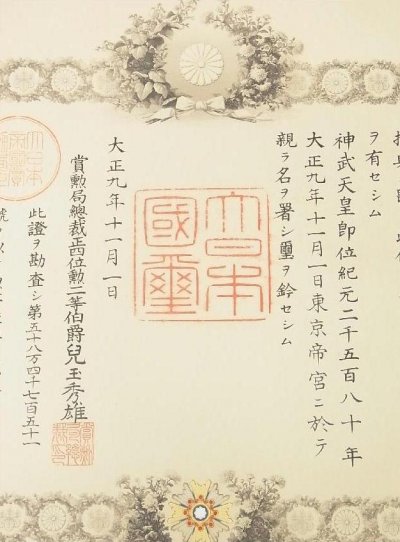 ヲ有セシム
神武天皇即位紀元二千五百八十年
大正九年十一月一日東京帝宮ニ於テ
親ラ名ヲ署シ璽ヲ鈐セシム
大日本
國璽
大正九年十一月一日
賞勲局總裁正四位勲二等伯爵兒玉秀雄
此證ヲ勘査シ第五十八万四千七百五十一